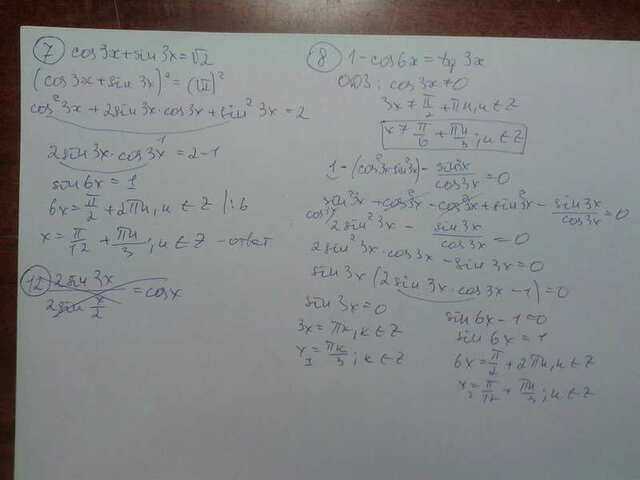 7 cos3x+sin3x=√2
(cos3x+sin3x)²=(√2)²
cos²3x+2sin3x·cos3x+sin²3x=2
2sin3x·cos3x=2-1
sin6x=1
6x=π/2+2πn, n∈Z |:6
x=π/12+πn/3; n∈Z - ответ
12 2sin3x/2sin x/2=cosx
8 1-cos6x=tg3x
ОДЗ: cos3x≠0
3x≠π/2+πn, n∈Z
x≠π/6+πn/3; n∈Z
1-(cos²3x-sin²3x)-sin3x/cos3x=0
sin²3x+cos²3x-cos²3x+sin²3x-sin3x/cos3x=0
cos3x/2sin²3x-sin3x/cos3x=0
2sin²3x·cos3x-sin3x=0
sin3x(2sin3x·cos3x-1)=0
sin3x=0
3x=πk, k∈Z
x₁=πk/3; k∈Z
sin6x-1=0
sin6x=1
6x=π/2+2πn, n∈Z
x₂=π/12+πn/3; n∈Z